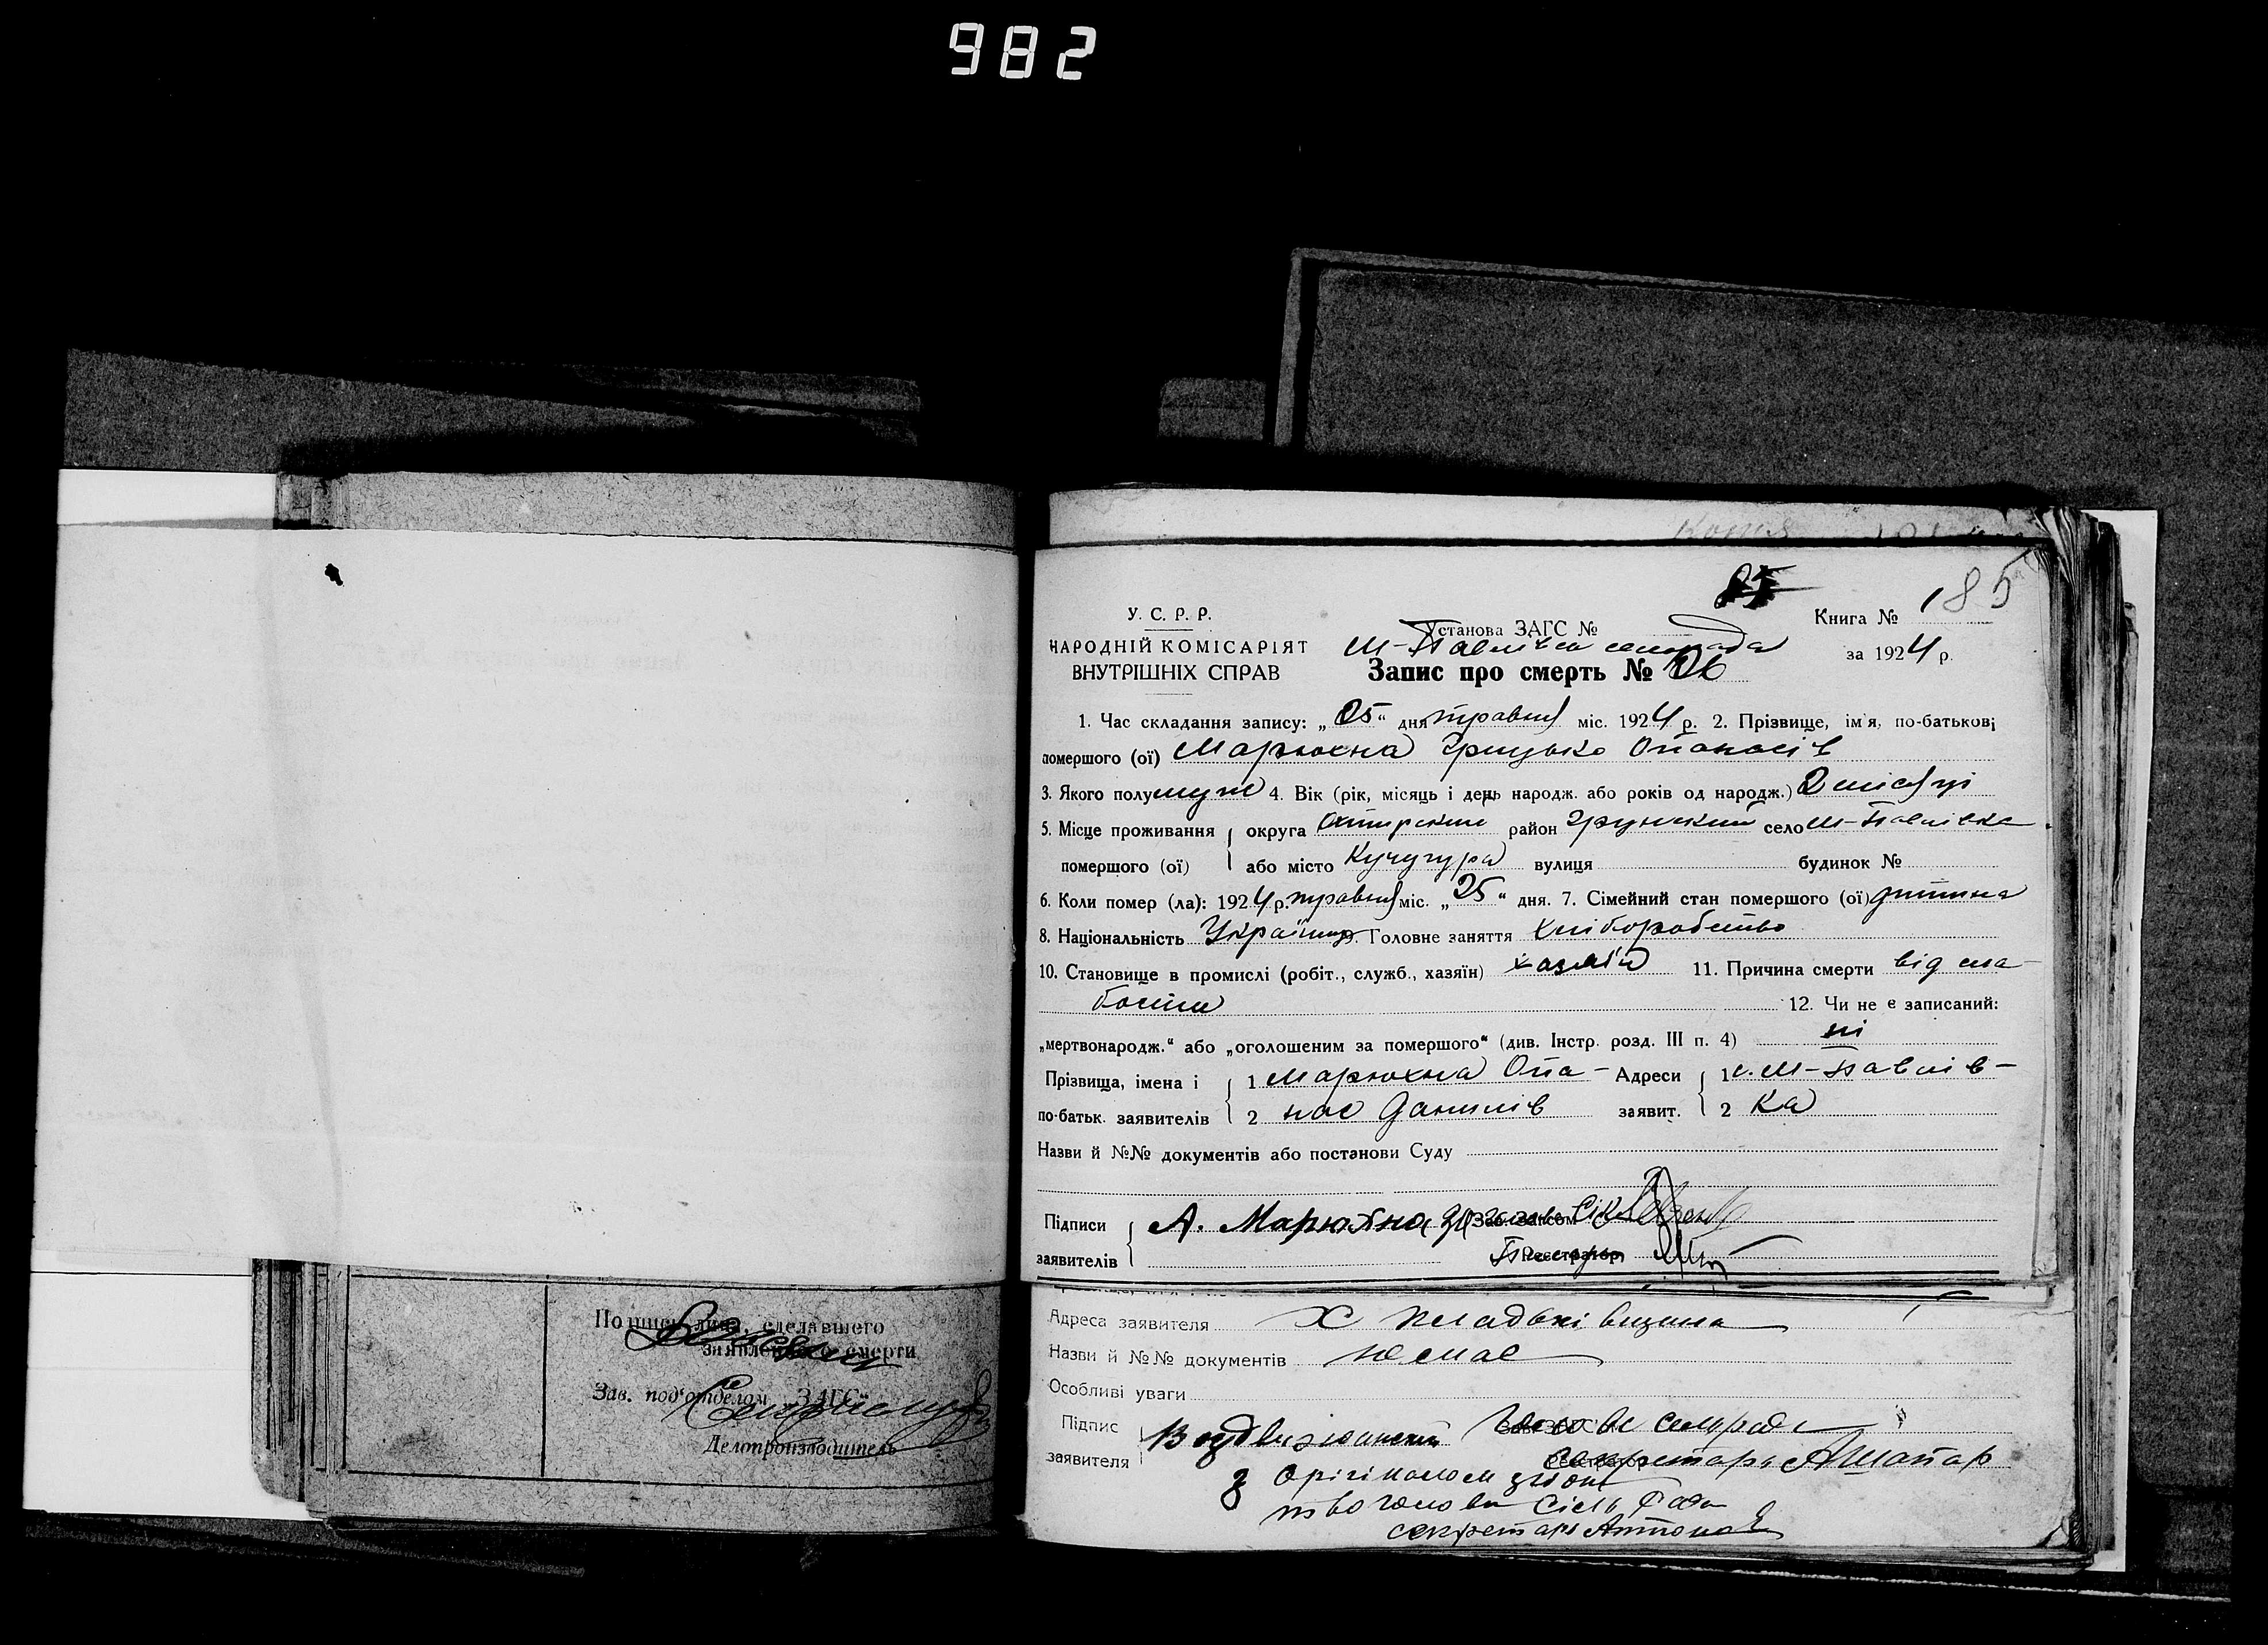 982
Копия
185
У. С. Р. Р.
НАРОДНІЙ КОМІСАРІЯТ
ВНУТРІШНІХ СПРАВ
Установа ЗАГС №
М-Павлівка сельрада
Запис про смерть № 26
Книга №
за 1924 р.
1. Час складання запису: „25“ дня травня міс. 1924 р. 2. Прізвище, ім'я, по-батькові
помершого (ої) Марюхна Грицько Опанасів
3. Якого полу муж 4. Вік (рік, місяць і день народж. або років од народж.) 2 місяці
5. Місце проживання округа Охтирський район Грунський село М-Павлівка
помершого (ої) або місто Кучугура вулиця будинок №
6. Коли помер (ла): 1924 р. травня міс. „25“ дня. 7. Сімейний стан помершого (ої) дитина
8. Національність Українец 9. Головне заняття хліборобство
10. Становище в промислі (робіт., служб., хазяїн) хазяїн 11. Причина смерти від сла-
бости 12. Чи не є записаний:
„мертвонародж.“ або „оголошеним за помершого“ (див. Інстр. розд. III п. 4) ні
Прізвища, імена і 1 Марюхна Опа- Адреси 1 с. М-Павлів-
по-батьк. заявителів 2 нас Данилів заявит. 2 ка
Назви й №№ документів або постанови Суду
Підписи А. Марюхна Зав. Загсом
заявителів Реєстратор
Подпись лица, сделавшего
заявление о смерти
Зав. под'отделом „ЗАГС“
Делопроизводитель
Адреса заявителя Х
Назви й №№ документів немає
Особливі уваги
Підпис Голова сельради
заявителя секретарь
З Орігіналом згідно
голови Сіль Ради
секретарь